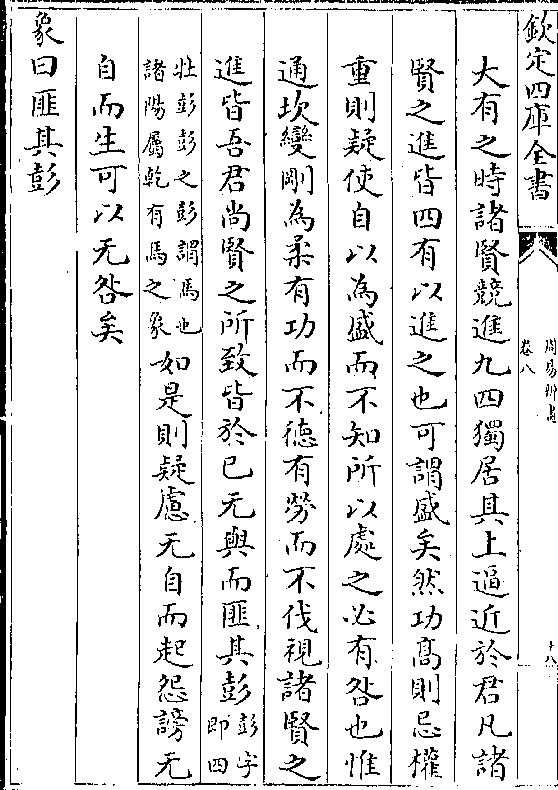 欽定四庫全書
周易明書
卷八
十八
大有之時諸賢競進九四獨居其上逼近於君凡諸
賢之進皆四有以進之也可謂盛矣然功髙則忌權
重則疑使自以為盛而不知所以處之必有咎也惟
通坎變剛為柔有功而不德有勞而不伐視諸賢之
進皆吾君尚賢之所致皆於已无與而匪其彭彭字即四
牡彭彭之彭謂馬也諸陽屬乾有馬之象如是則疑慮无自而起怨謗无
自而生可以无咎矣
象曰匪其彭